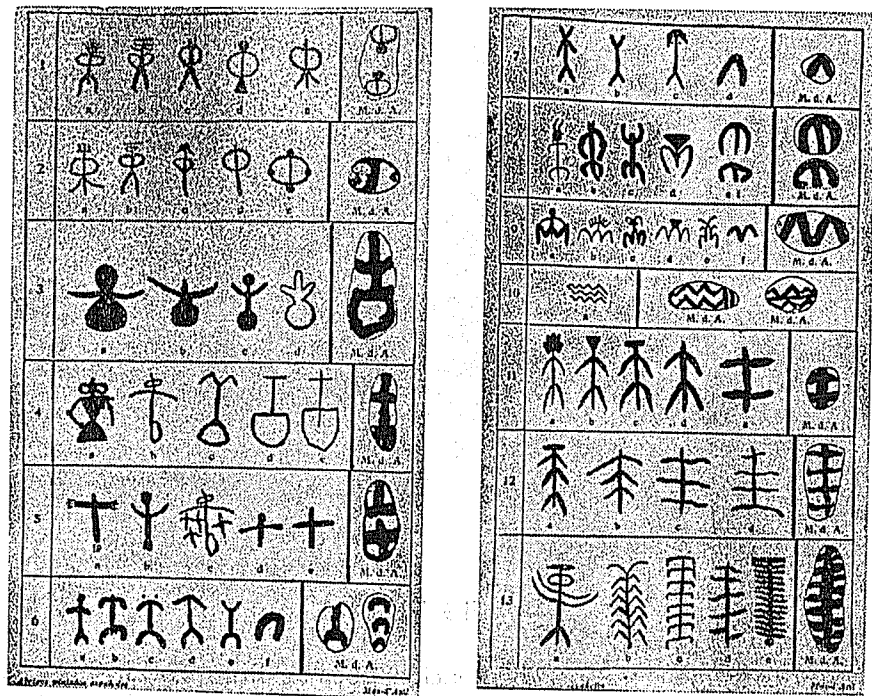 1 a b c d e M. d. A.
2 a b c d e M. d. A.
3 a b c d M. d. A.
4 a b c d e M. d. A.
5 a b c d e M. d. A.
6 a b c d e f M. d. A.
Mas-d'Azil
7 a b c d M. d. A.
a b c d e f M. d. A.
9 a b c d e f M. d. A.
10 a M. d. A. M. d. A.
11 a b c d e M. d. A.
12 a b c d M. d. A.
13 a b c d e M. d. A.